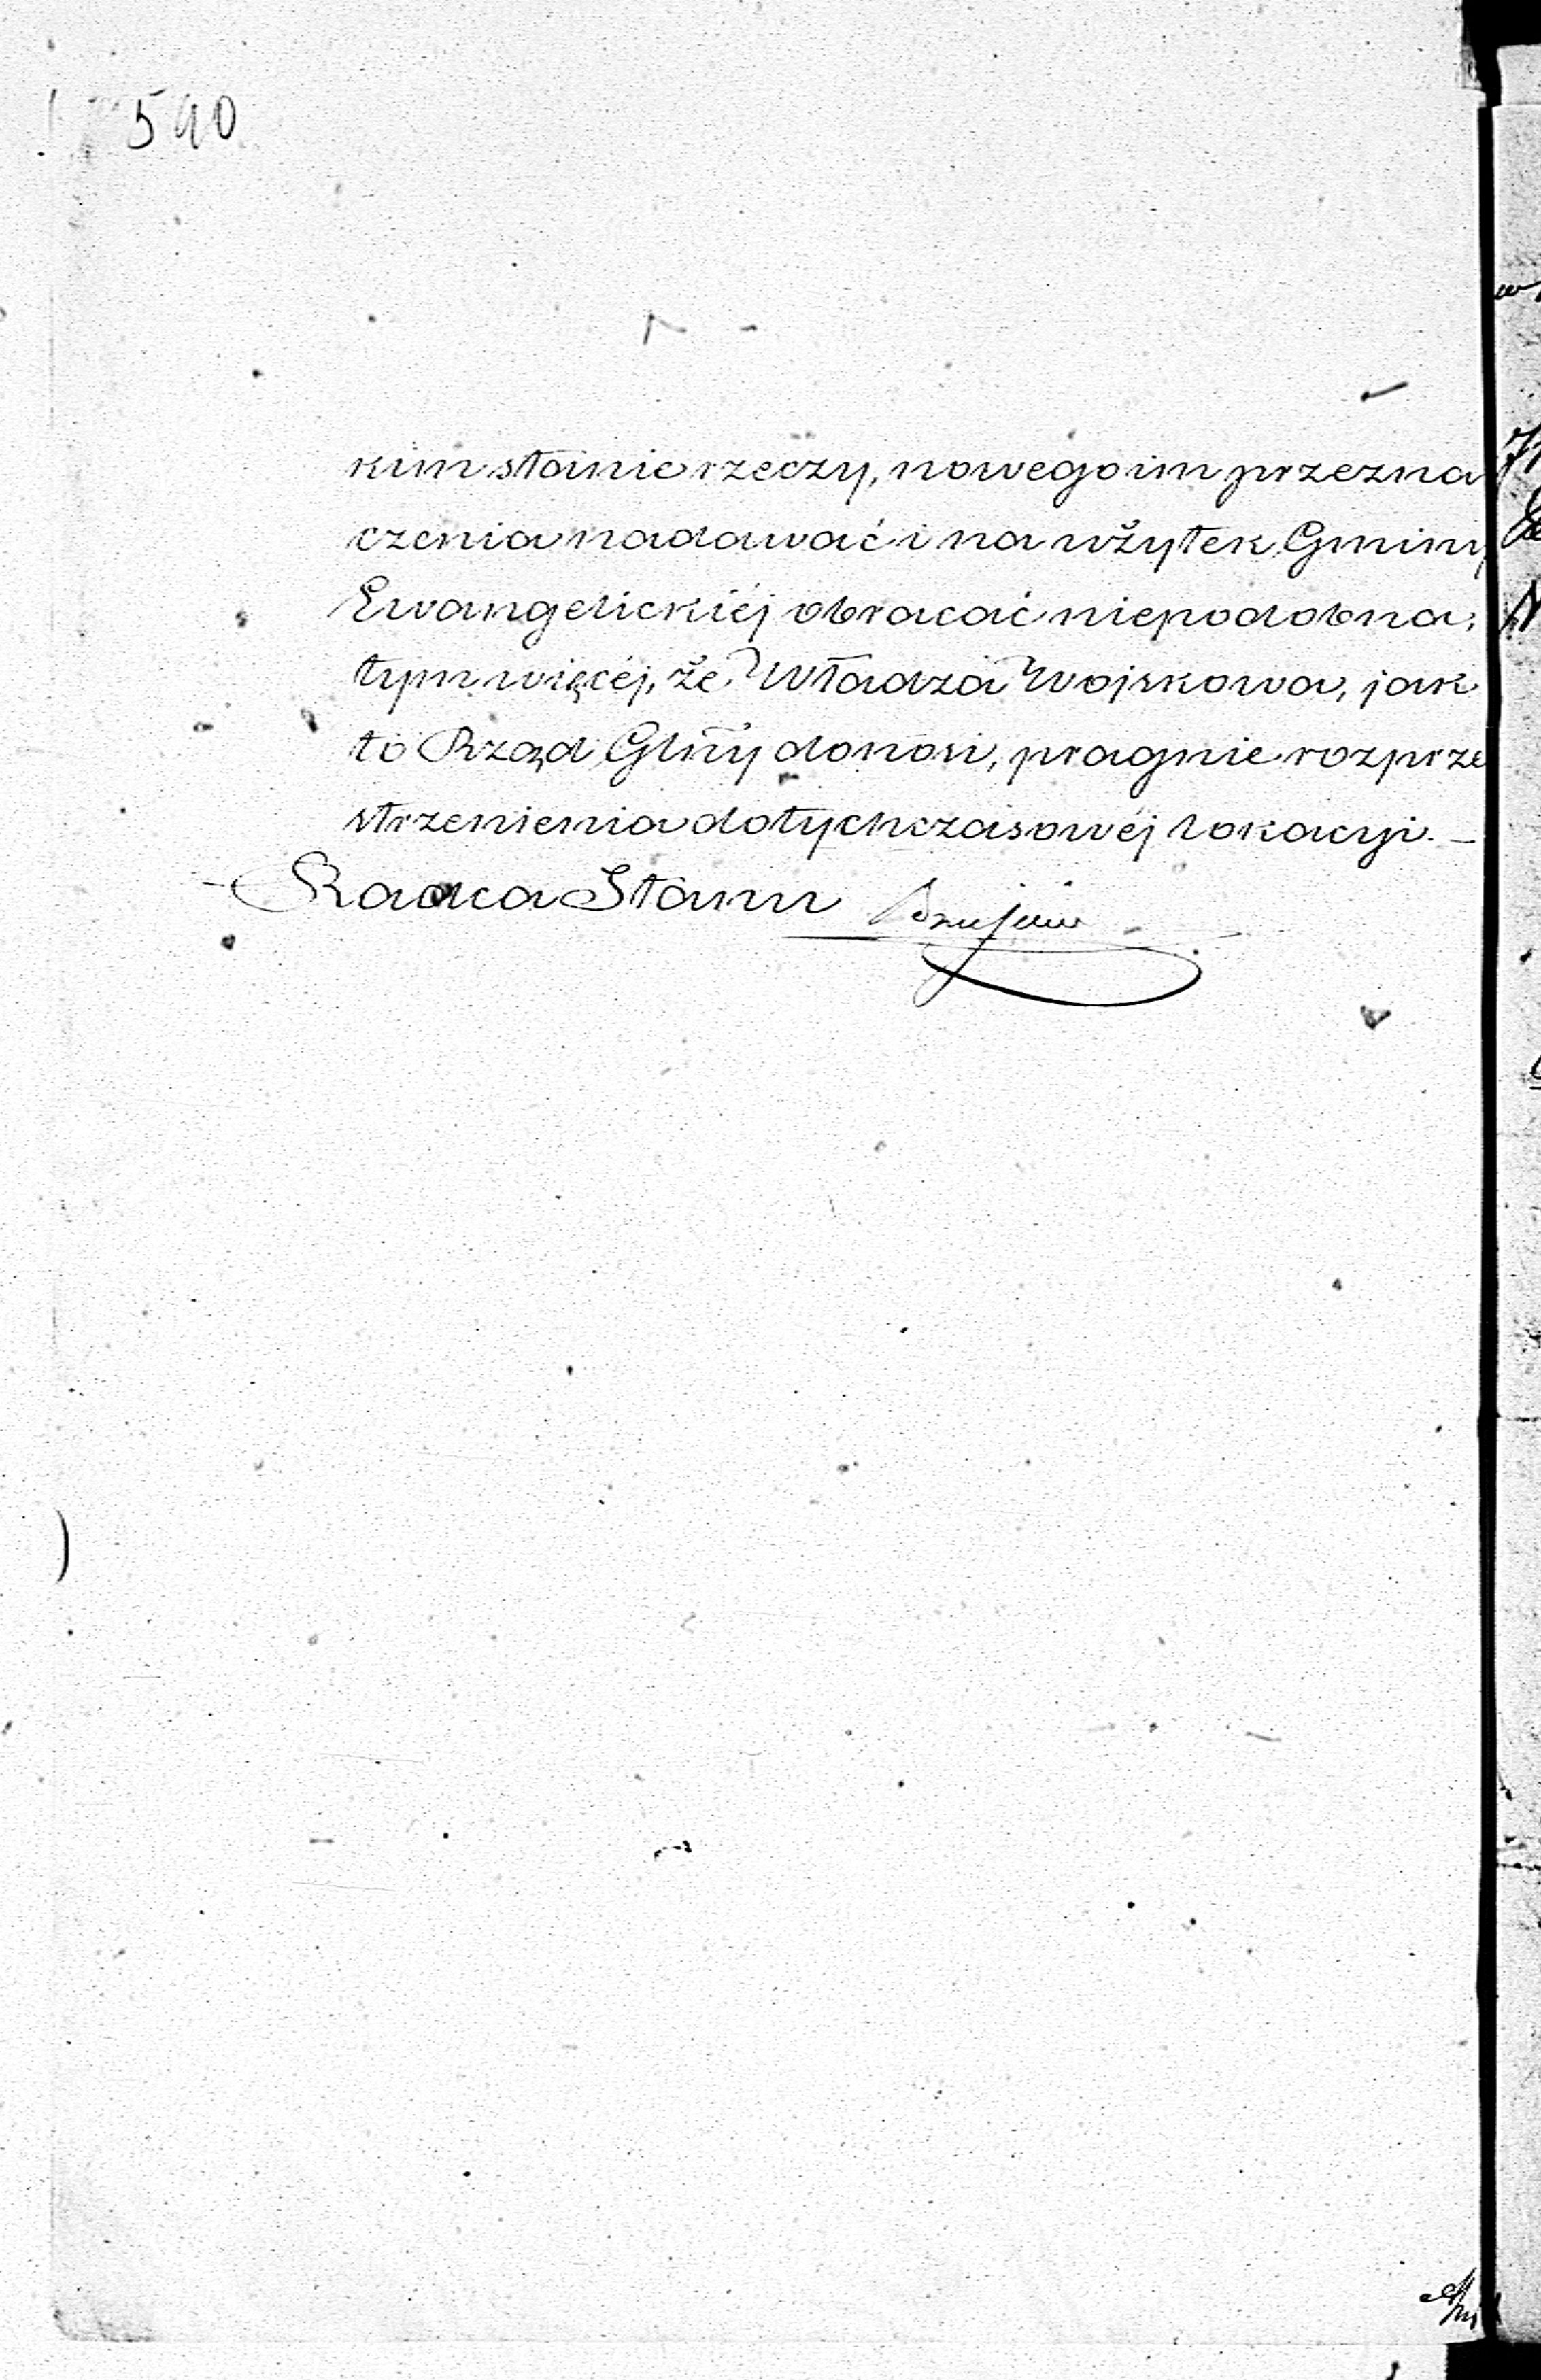 540
kim stanie rzeczy, nowego im przezna
czenia nadawać i na użytek Gminy
Ewangelickiéj obracać niepodobna,
tym więcéj, że Władza Wojskowa, jak
to Rząd Glny donosi, pragnie rozprze
strzenienia dotychczasowéj lokacyi. –
Radca Stanu